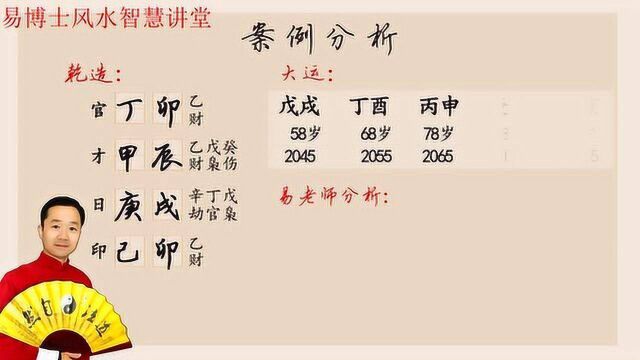 易博士风水智慧讲堂
案例分析
乾造：
官 丁 卯 乙财
才 甲 辰 乙戊癸 财枭伤
日 庚 戌 辛丁戊 劫官枭
印 己 卯 乙财
大运：
戊戌 丁酉 丙申
58岁 68岁 78岁
2045 2055 2065
易老师分析：